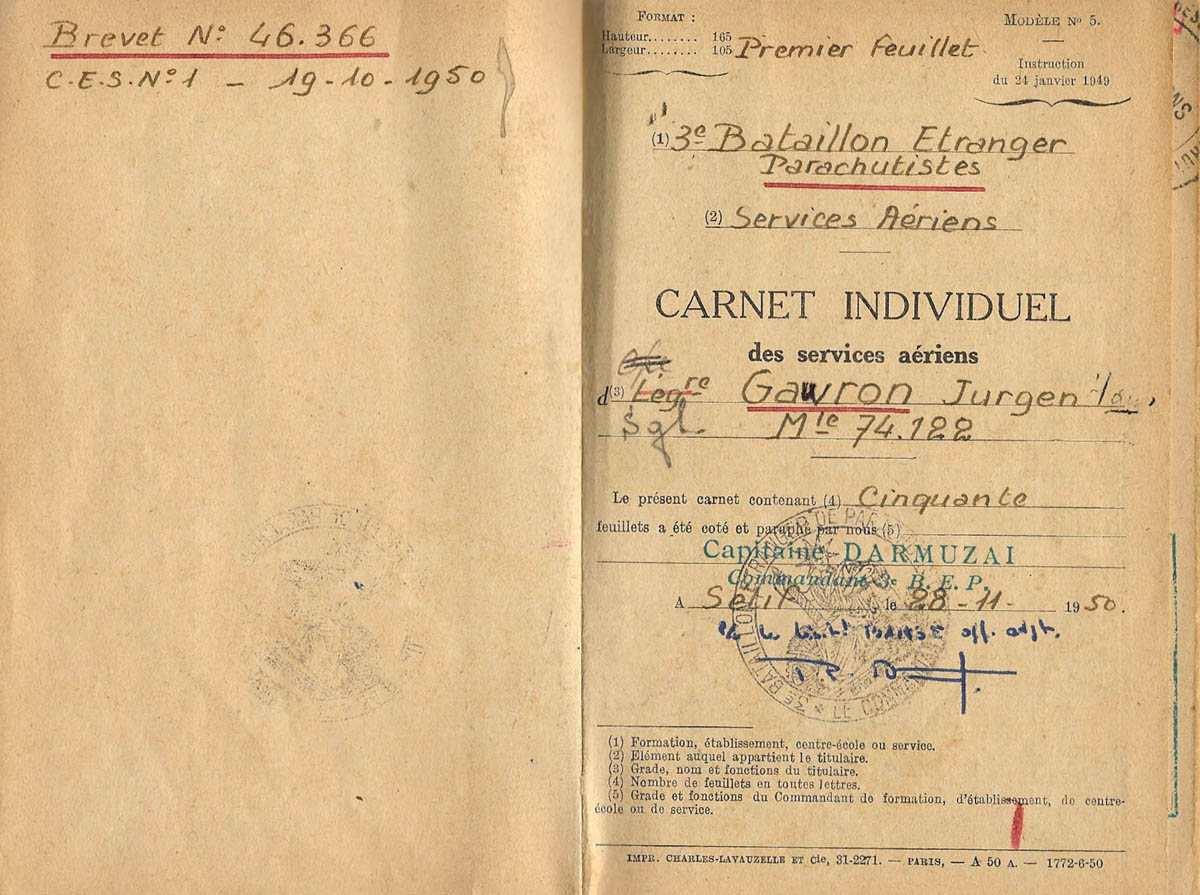 Brevet N° 46.366
C.E.S. N°1 - 19-10-1950
FORMAT :
Hauteur........ 165
Largeur........ 105
Premier Feuillet
MODÈLE N° 5.
Instruction
du 24 janvier 1949
(1) 3e Bataillon Etranger
Parachutistes
(2) Services Aériens
CARNET INDIVIDUEL
des services aériens
d(3) Légre Gawron Jurgen
Sgt Mle 74.122
Le présent carnet contenant (4) Cinquante
feuillets a été coté et paraphé par nous (5)
Capitaine DARMUZAI
Commandant 3e B.E.P.
A Sétif le 28-11- 1950.
off. adjt.
3e BATAILLON ETRANGER DE
LE COMMANDANT
(1) Formation, établissement, centre-école ou service.
(2) Elément auquel appartient le titulaire.
(3) Grade, nom et fonctions du titulaire.
(4) Nombre de feuillets en toutes lettres.
(5) Grade et fonctions du Commandant de formation, d'établissement, de centre-
école ou de service.
IMPR. CHARLES-LAVAUZELLE ET Cie, 31-2271. — PARIS, — A 50 A. — 1772-6-50